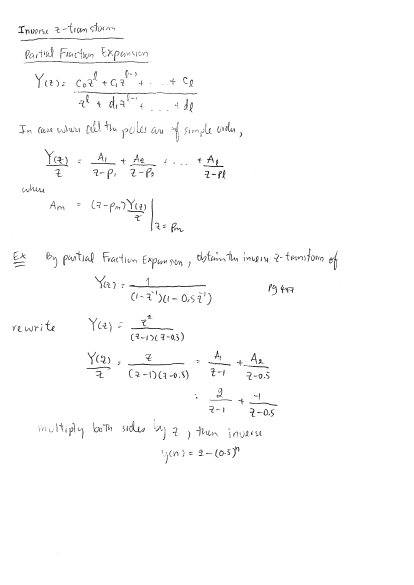 Inverse z-transform
Partial Fraction Expansion
Y(z) = c₀z^l + c₁z^(l-1) + . . . + c_l / z^l + d₁z^(l-1) + . . . + d_l
In case when all the poles are of simple order,
Y(z)/z = A₁/(z-p₁) + A₂/(z-p₂) + . . . + A_l/(z-p_l)
where
A_m = (z-p_m) Y(z)/z |z = p_m
Ex By partial Fraction Expansion, obtain the inverse z-transform of
Y(z) = 1 / (1-z⁻¹)(1-0.5z⁻¹) pg 447
rewrite Y(z) = z² / (z-1)(z-0.5)
Y(z)/z = z / (z-1)(z-0.5) = A₁/(z-1) + A₂/(z-0.5)
= 2/(z-1) + -1/(z-0.5)
multiply both sides by z, then inverse
y(n) = 2-(0.5)ⁿ